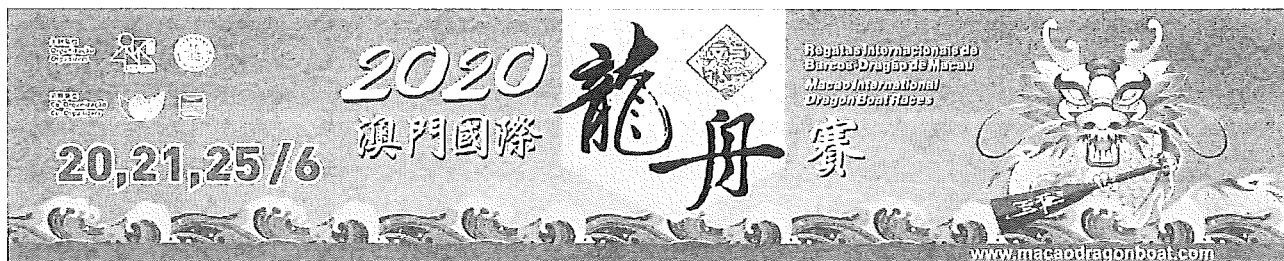 Organização
2020
澳門國際
龍舟
賽
Regatas Internacionais de
Barcos-Dragão de Macau
Macao International
Dragon Boat Races
20,21,25/6
www.macaodragonboat.com